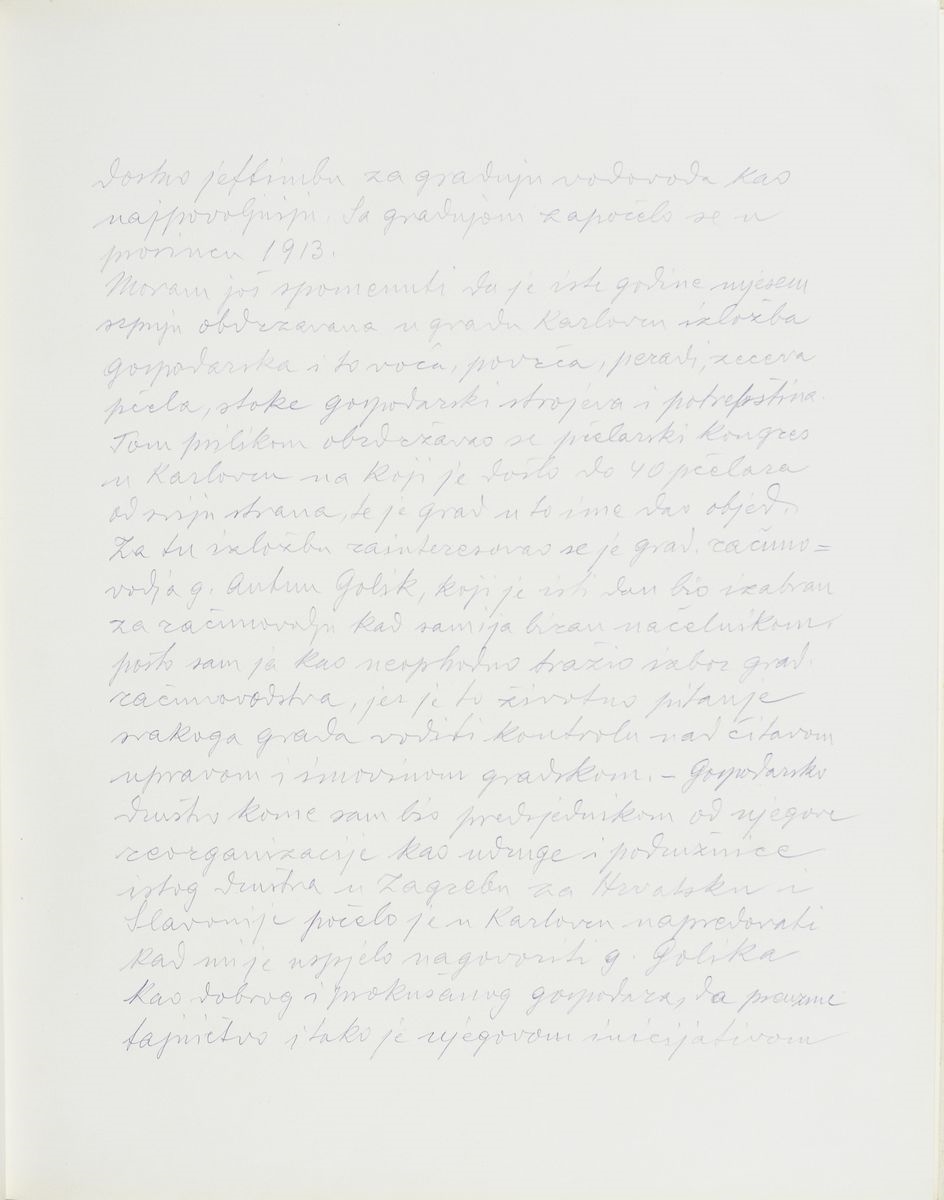 dosta jeftinibu za gradnju vodovoda kao
najpovoljniju. Sa gradnjom započelo se u
prosincu 1913.
Moram još spomenuti da je iste godine mjesece
srpnju obdržavana u gradu Karlovcu izložba
gospodarska i to voća, povrća, peradi, zeceva
pčela, stoke gospodarski strojeva i potrepština.
Tom prilikom obrdržavao se pčelarski kongres
u Karlovcu na koji je došlo do 40 pčelara
od sviju strana, te je grad u to ime dao objed.
Za tu izložbu zainteresovao se je grad. računo=
vodja g. Antun Golik, koji je isti dan bio izabran
za računovodju kad sam ija biran načelnikom,
pošto sam ja kao neophodno tražio izbor grad.
računovodstva, jer je to životno pitanje
svakoga grada voditi kontrolu nad čitavom
upravom i imovinom gradskom. – Gospodarsko
društvo kome sam bio predsjednikom od njegove
reorganizacije kao udruge i podružnice
istog društva u Zagrebu za Hrvatsku i
Slavonije počelo je u Karlovcu napredovati
kad mi je uspjelo nagovoriti g. Golika
kao dobrog i prokušanog gospodara, da preuzme
tajničtvo i tako je njegovom inicijativom